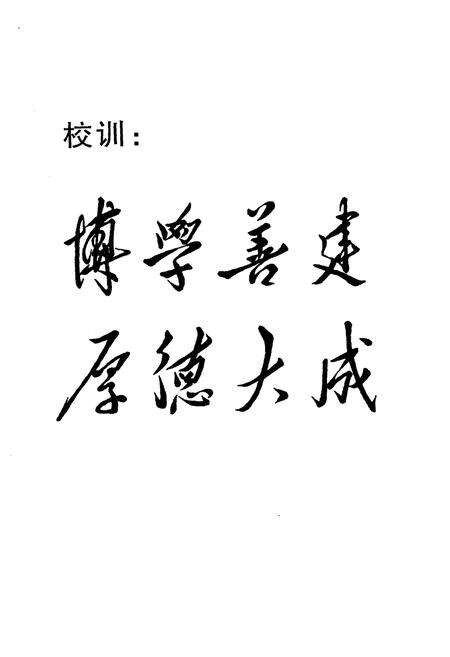 校训：
博学善建
厚德大成